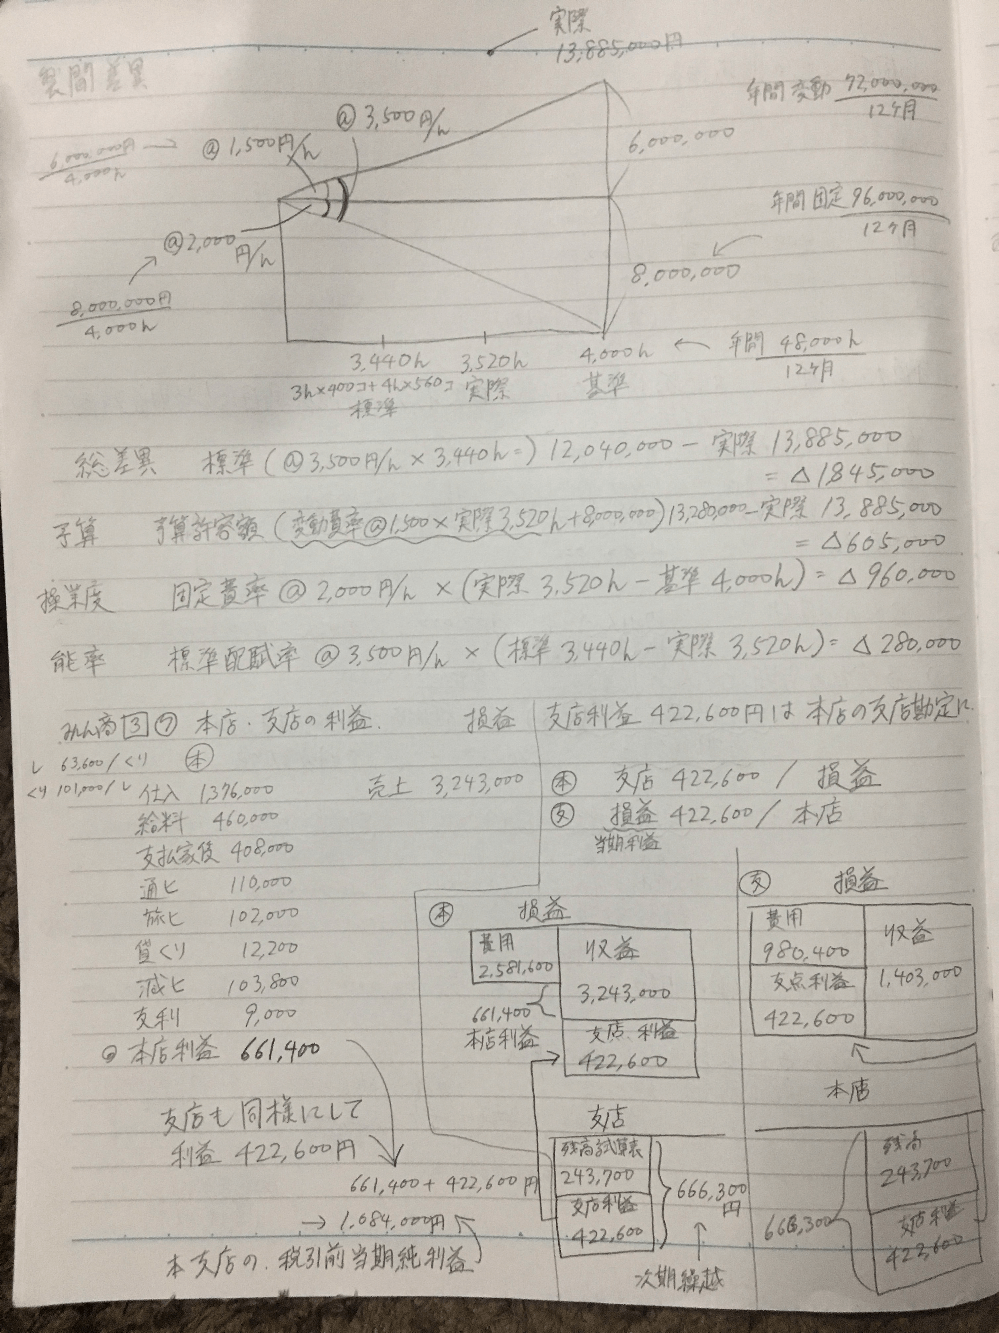 実際
13,885,000円
差異
@ 3,500円/h
@ 1,500円/h
6,000,000円
4,000h
年間変動 72,000,000
12ヶ月
6,000,000
@2,000
円/h
年間固定 96,000,000
12ヶ月
8,000,000
8,000,000円
4,000h
3,440h 3,520h 4,000h ← 年間 48,000h
12ヶ月
3h×400コ+4h×560コ 実際 基準
標準
総差異 標準(@3,500円/h × 3,440h=) 12,040,000 - 実際 13,885,000
= △1,845,000
予算 予算許容額(変動費率@1,500×実際3,520h+8,000,000)13,280,000-実際 13,885,000
= △605,000
操業度 固定費率@2,000円/h ×(実際 3,520h - 基準 4,000h)= △960,000
能率 標準配賦率@3,500円/h ×(標準 3,440h - 実際 3,520h)= △280,000
みん商 3 ⑦ 本店・支店の利益. 損益
支店利益 422,600円は本店の支店勘定に
し 63,600/くり 本
くり 101,000/し 仕入 1,376,000 売上 3,243,000
給料 460,000
支払家賃 408,000
通ヒ 110,000
旅ヒ 102,000
貸くり 12,200
減ヒ 103,800
支利 9,000
本店利益 661,400
支店も同様にして
利益 422,600円
661,400 + 422,600円
→ 1,084,000円
本支店の. 税引前当期純利益
本 支店 422,600 / 損益
支 損益 422,600 / 本店
当期利益
本 損益
費用
2,581,600
収益
3,243,000
661,400
本店利益
支店利益
422,600
支店
残高試算表
243,700
支店利益
422,600
666,300
円
次期繰越
支 損益
費用
980,400
収益
1,403,000
支点利益
422,600
本店
残高
243,700
支店利益
422,600
666,300